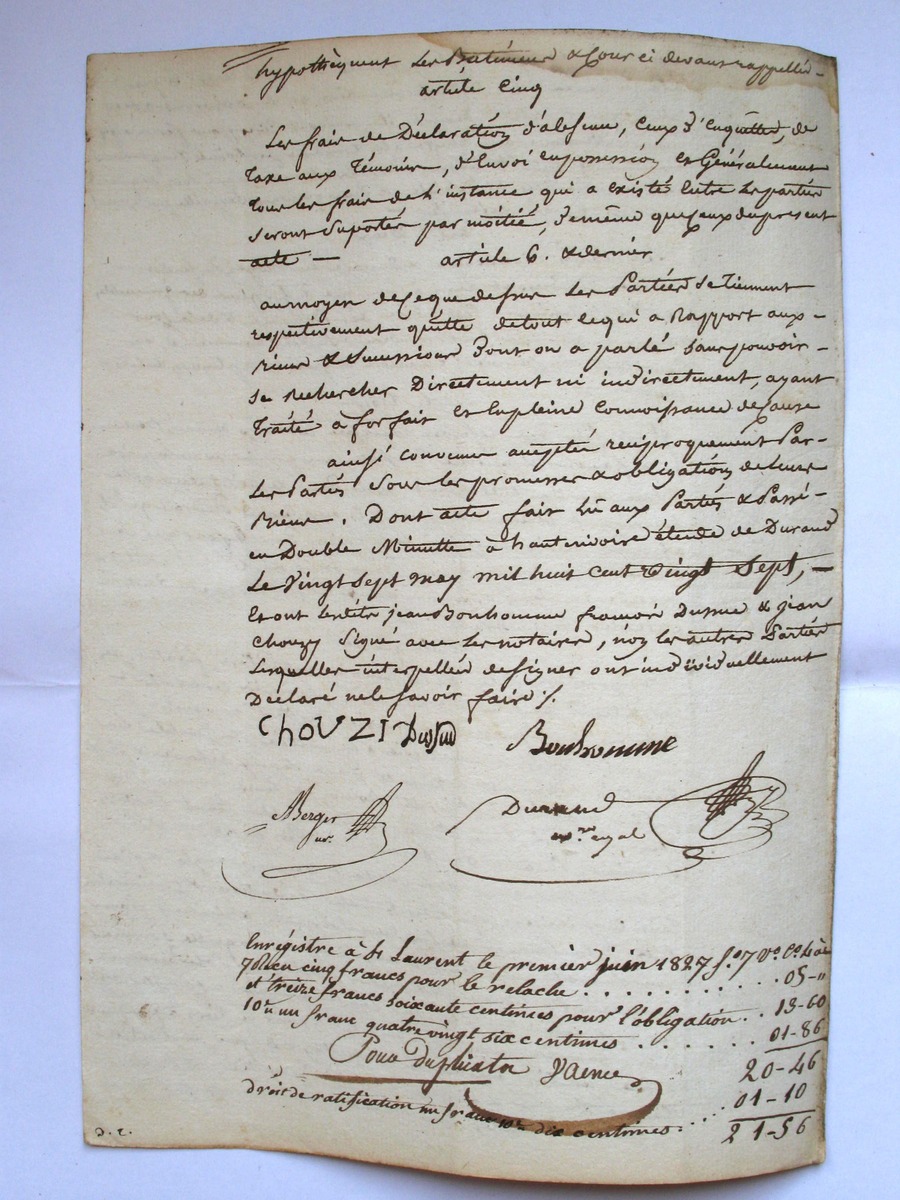 hypothèquent Les Batimens & Cour ci devant rappellés -
article Cinq
Les frais de Déclaration d'absence, Ceux d'Enquêttes, de
taxe aux témoins, d'Envoi en possession et Généralement
tous les frais de l'instance qui a existé Entre les parties
seront Suportés par moitié, de même que Ceux du present
acte —
article 6. & dernier
au moyen de Ce que dessus Les Parties se tiennent
respectivement quitte de tout Ce qui a Rapport aux -
Biens & Successions dont on a parlé sans pouvoir -
se Rechercher Directement ni indirectement, ayant
traité à forfait Et En pleine Connoissance de Cause
ainsi convenu accepté reciproquement Par -
Les Partiés Sous les promesses & obligations de Leurs
Biens. Dont acte fait Lû aux Partiés & Passé -
en Double Minutte à hauterivoire étude de Durand
Le Vingt Sept may mil huit Cent Vingt Sept, —
Et ont Lesdits jean Bonhomme françois Dussud & jean
Chouzy Signé avec Les notaires, non Les autres Partiés
Lesquelles interpellées de signer ont individuellement
Déclaré ne le savoir faire ./.
ChOUZI Dussud Bonhomme
Berger
nre.
Durand
nre. royal
Enrégistré à St Laurent le premier juin 1827 f.° 7 v.° C.es 4 à
7 Reçu cinq francs pour le relache . . . . . . . . . . 05-"
et treize francs soixante centimes pour l'obligation . . 13-60
10.e un franc quatre vingt six centimes . . . . . . 01-86
20-46
Pour Duplicata
droit de ratification un franc 10.e dix centimes . . . . 01-10
21-56
D. E.